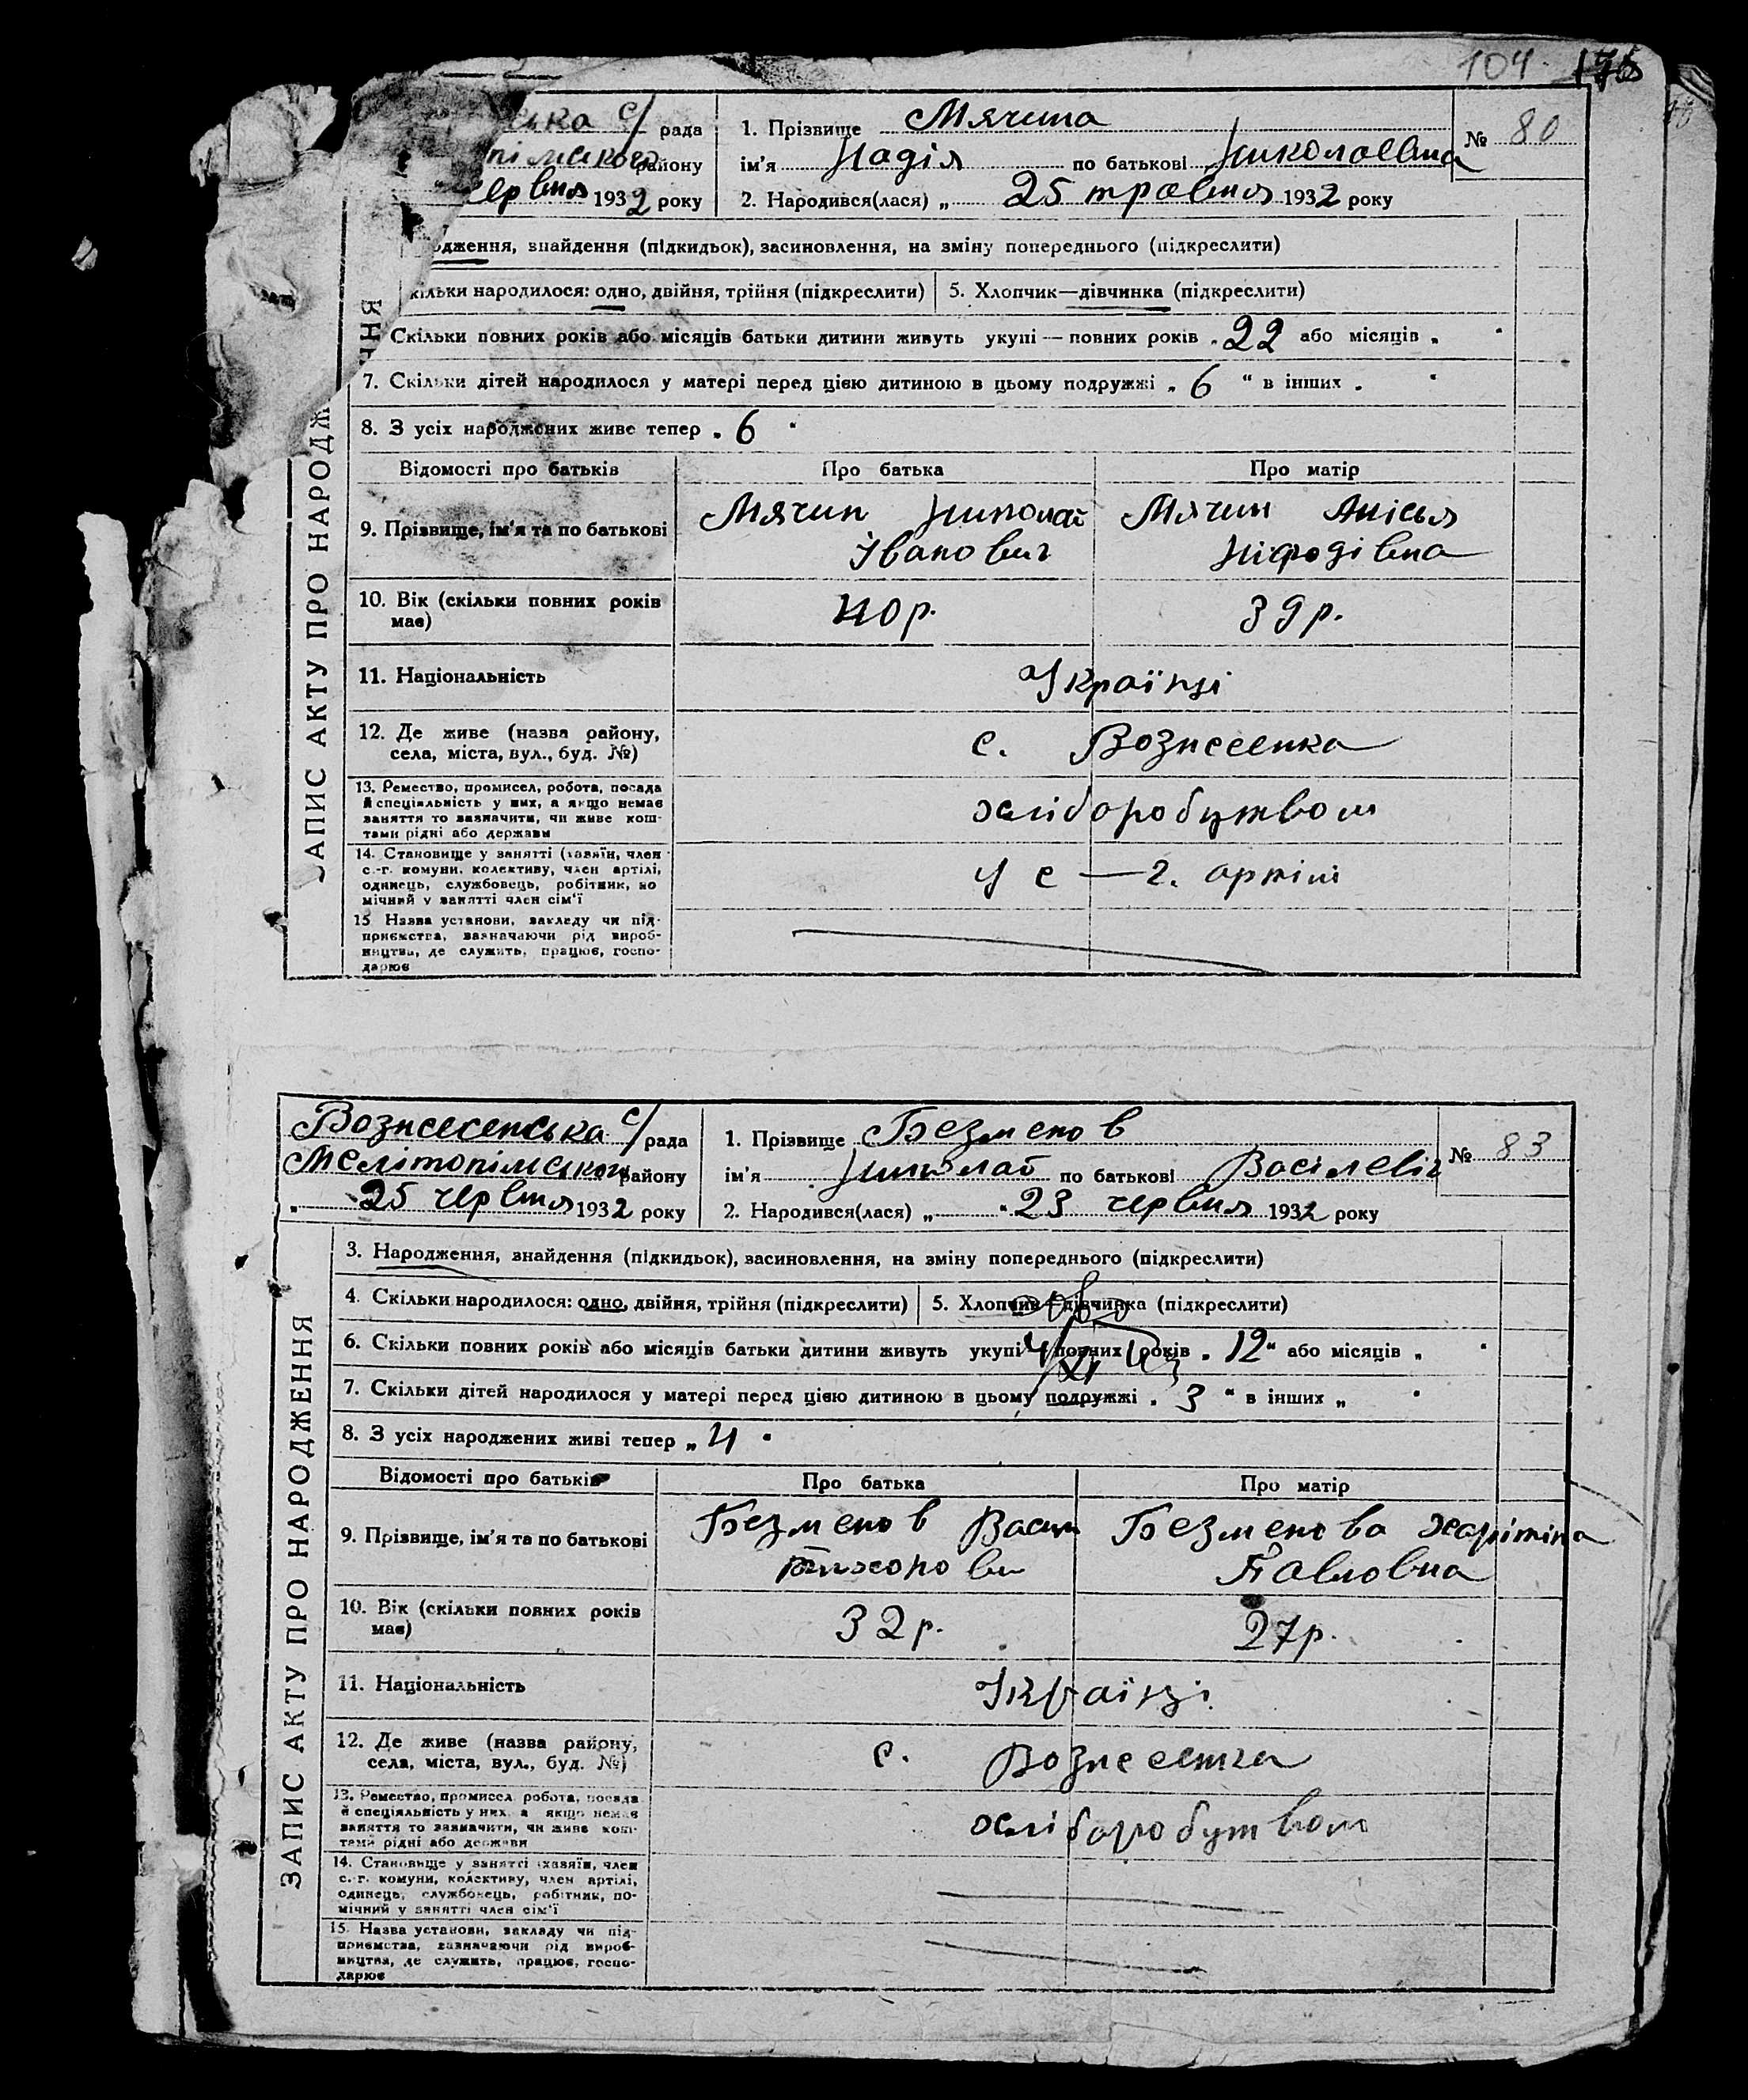 104 175
ська с/ рада
пільського району
червня 1932 року
1. Прізвище Мячина
ім'я Надія по батькові Николаевна
№ 80
2. Народився(лася) „ 25 травня 1932 року
одження, знайдення (підкидьок), засиновлення, на зміну попереднього (підкреслити)
кільки народилося: одно, двійня, трійня (підкреслити) 5. Хлопчик—дівчинка (підкреслити)
Скільки повних років або місяців батьки дитини живуть укупі — повних років „ 22 або місяців „
7. Скільки дітей народилося у матері перед цією дитиною в цьому подружжі „ 6 “ в інших „
8. З усіх народжених живе тепер „ 6 “
АПИС АКТУ ПРО НАРОДЖ ННЯ
Відомості про батьків Про батька Про матір
9. Прізвище, ім'я та по батькові Мячин Николай Мячин Анісья
Івано вич Ніфодівна
10. Вік (скільки повних років 40 р. 39 р.
має)
11. Національність Українці
12. Де живе (назва району, с. Вознесенка
села, міста, вул., буд. №)
13. Ремество, промисел, робота, посада
й спеціяльність у них, а якщо немає хліборобутвом
заняття то зазначити, чи живе кош-
тами рідні або держави
14. Становище у занятті (хазяїн, член
с.-г. комуни, колективу, член артілі, У с — г. артілі
одинець, службовець, робітник, по
мічний у занятті член сім'ї
15 Назва установи, закладу чи під-
приємства, зазначаючи рід вироб-
ництва, де служить, працює, госпо-
дарює
Вознесенська с/ рада
Мелітопільського району
„ 25 червня 1932 року
1. Прізвище Безменов
ім'я Николай по батькові Васілевіч
№ 83
2. Народився(лася) „ 23 червня 1932 року
3. Народження, знайдення (підкидьок), засиновлення, на зміну попереднього (підкреслити)
4. Скільки народилося: одно, двійня, трійня (підкреслити) 5. Хлопчик—дівчинка (підкреслити)
6. Скільки повних років або місяців батьки дитини живуть укупі повних років „ 12 “ або місяців „
7. Скільки дітей народилося у матері перед цією дитиною в цьому подружжі „ 3 “ в інших „
8. З усіх народжених живі тепер „ 4 “
ЗАПИС АКТУ ПРО НАРОДЖЕННЯ
Відомості про батьків Про батька Про матір
9. Прізвище, ім'я та по батькові Безменов Васил Безменова Харітіна
Павловна
10. Вік (скільки повних років 32 р. 27 р.
має)
11. Національність Українці
12. Де живе (назва району, с. Вознесенка
села, міста, вул., буд. №)
13. Ремество, промисел робота, посада
й спеціяльність у них, а якщо немає хліборобутвом
заняття то зазначити, чи живе кош-
тами рідні або держави
14. Становище у занятті (хазяїн, член
с.-г. комуни, колективу, член артілі,
одинець, службовець, робітник, по-
мічний у занятті член сім'ї
15. Назва установи, закладу чи під-
приємства, зазначаючи рід вироб-
ництва, де служить, працює, госпо-
дарює